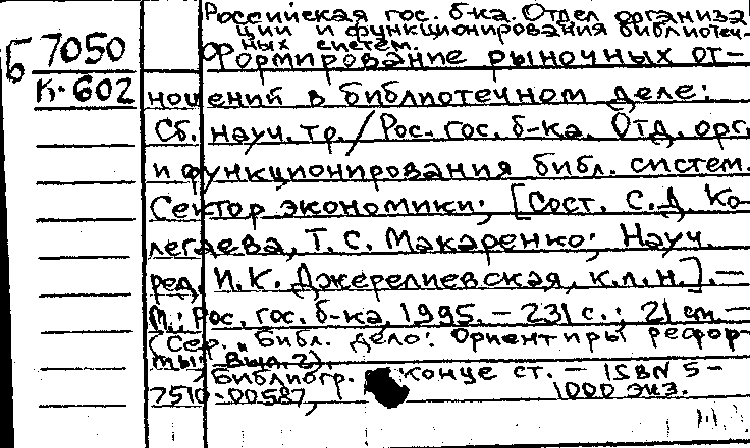 Российская гос. б-ка. Отдел организа
ции и функционирования библиотеч-
ных систем.
Б 7050
К-602
Формирование рыночных от-
ношений в библиотечном деле:
Сб. науч. тр. / Рос. гос. б-ка. Отд. орг.
и функционирования библ. систем.
Сектор экономики; [Сост. С.Д. Ко-
легаева, Т. С. Макаренко; Науч.
ред. И. К. Джерелиевская, к.п.н.]. —
М.: Рос. гос. б-ка, 1995. — 231 с.; 21 см. —
(Сер. "Библ. дело: Ориентиры рефор-
мы; Вып. 2).
Библиогр. в конце ст. — ISBN 5-
7510-00587, 1000 экз.